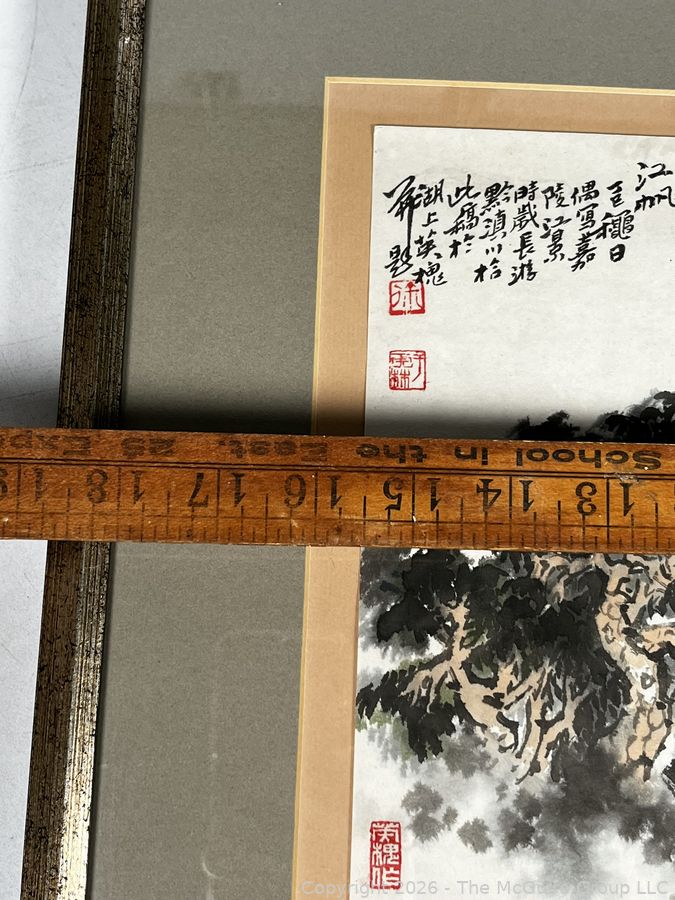 江帆
龝日
偶寫嘉
陵江景
時歲長游
黔滇川拾
此稿於
湖上英槐
題
School in the East. 28 Exp
13 1 14 1 15 1 16 1 17 1 18 1
Copyright 2026 - The McG Group LLC